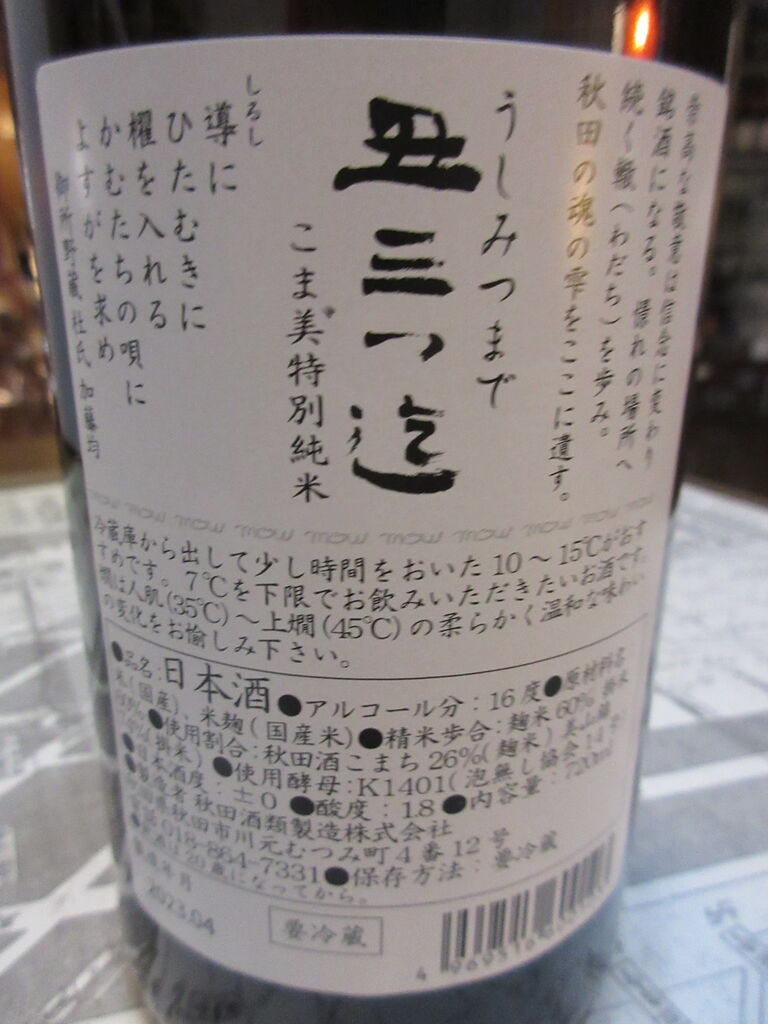 崇高な敬意は信念に変わり
銘酒になる。憧れの場所へ
続く轍(わだち)を歩み。
秋田の魂の雫をここに遺す。
うしみつまで
丑三つ迄
こま美特別純米
しるし
導に
ひたむきに
櫂を入れる
かむたちの唄に
よすがを求め
御所野蔵 杜氏 加藤均
mow mow mow mow mow mow mow mow
冷蔵庫から出して少し時間をおいた10～15℃がおす
すめです。7℃を下限でお飲みいただきたいお酒です。
燗は人肌(35℃)～上燗(45℃)の柔らかく温和な味わい
の変化をお愉しみ下さい。
●品名:日本酒●アルコール分:16度●原材料名
米(国産)、米麹(国産米)●精米歩合:麹米60% 掛米
60%●使用割合:秋田酒こまち26%(麹米)美山錦
74%(掛米)●使用酵母:K1401(泡無し協会14号)
●日本酒度:±0●酸度:1.8●内容量:720ml
●製造者 秋田酒類製造株式会社
秋田県秋田市川元むつみ町4番12号
電話018-864-7331●保存方法:要冷蔵
●飲酒は20歳になってから。
製造年月
2023.04
要冷蔵